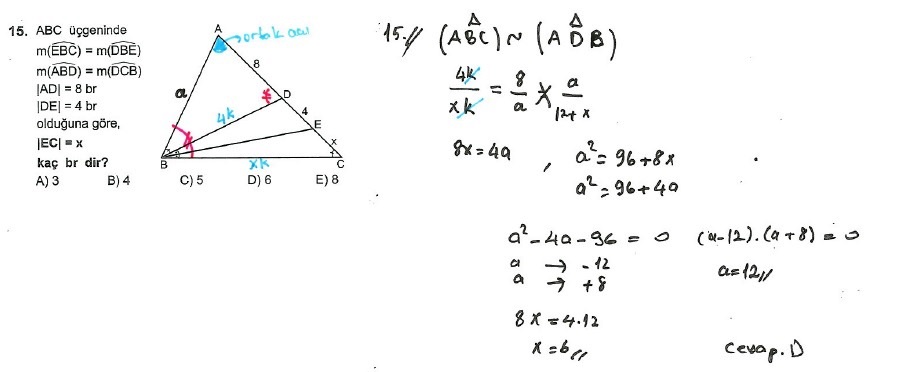 15. ABC üçgeninde
m(EBC) = m(DBE)
m(ABD) = m(DCB)
|AD| = 8 br
|DE| = 4 br
olduğuna göre,
|EC| = x
kaç br dir?
A) 3 B) 4 C) 5 D) 6 E) 8
A
ortak açı
8
a
D
4k
4
E
x
B
xk
C
15.// (ABC) ~ (ADB)
4k/xk = 8/a = a/12+x
8x = 4a , a² = 96 + 8x
a² = 96 + 4a
a² - 4a - 96 = 0 (a-12).(a+8) = 0
a → -12
a → +8
a = 12//
8x = 4.12
x = 6//
Cevap. D